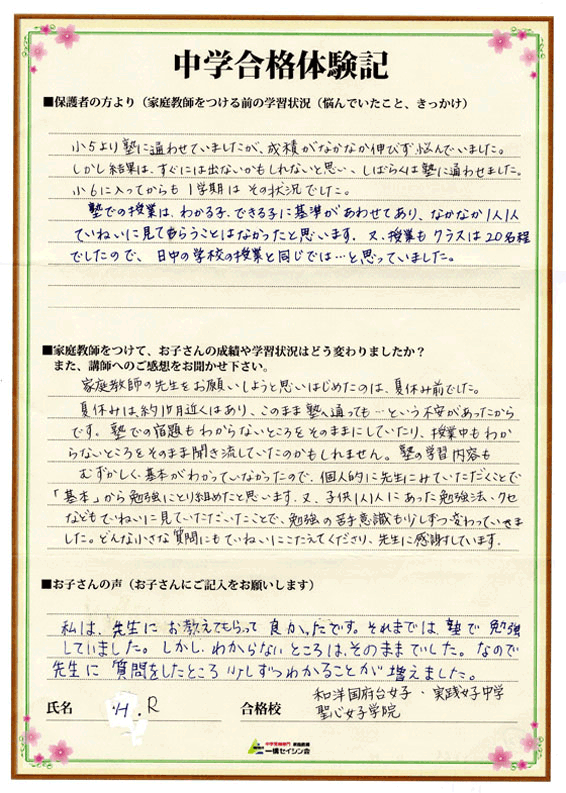 中学合格体験記
■保護者の方より（家庭教師をつける前の学習状況（悩んでいたこと、きっかけ）
小5より塾に通わせていましたが、成績がなかなか伸びず悩んでいました。
しかし結果は、すぐには出ないかもしれないと思い、しばらくは塾に通わせました。
小6に入ってからも1学期はその状況でした。
塾での授業は、わかる子、できる子に基準があわせてあり、なかなか1人1人
ていねいに見てもらうことはなかったと思います。又、授業もクラスは20名程
でしたので、日中の学校の授業と同じでは…と思っていました。
■家庭教師をつけて、お子さんの成績や学習状況はどう変わりましたか？
また、講師へのご感想をお聞かせ下さい。
家庭教師の先生をお願いしようと思いはじめたのは、夏休み前でした。
夏休みは、約1ヶ月近くはあり、このまま塾へ通っても…という不安があったから
です。塾での宿題もわからないところをそのままにしていたり、授業中もわか
らないところをそのまま聞き流していたのかもしれません。塾の学習内容も
むずかしく基本がわかっていなかったので、個人的に先生にみていただくことで
「基本」から勉強にとり組めたと思います。又、子供1人1人にあった勉強法、クセ
などもていねいに見ていただいたことで、勉強の苦手意識も少しずつ変わっていきま
した。どんな小さな質問にもていねいにこたえてくださり、先生に感謝しています。
■お子さんの声（お子さんにご記入をお願いします）
私は、先生にお教えてもらって良かったです。それまでは、塾で勉強
していました。しかし、わからないところは、そのままでした。なので
先生に質問をしたところ少しずつわかることが増えました。
氏名 H.R 合格校 和洋国府台女子・実践女子中学
聖心女子学院
中学受験専門 家庭教師
一橋セイシン会